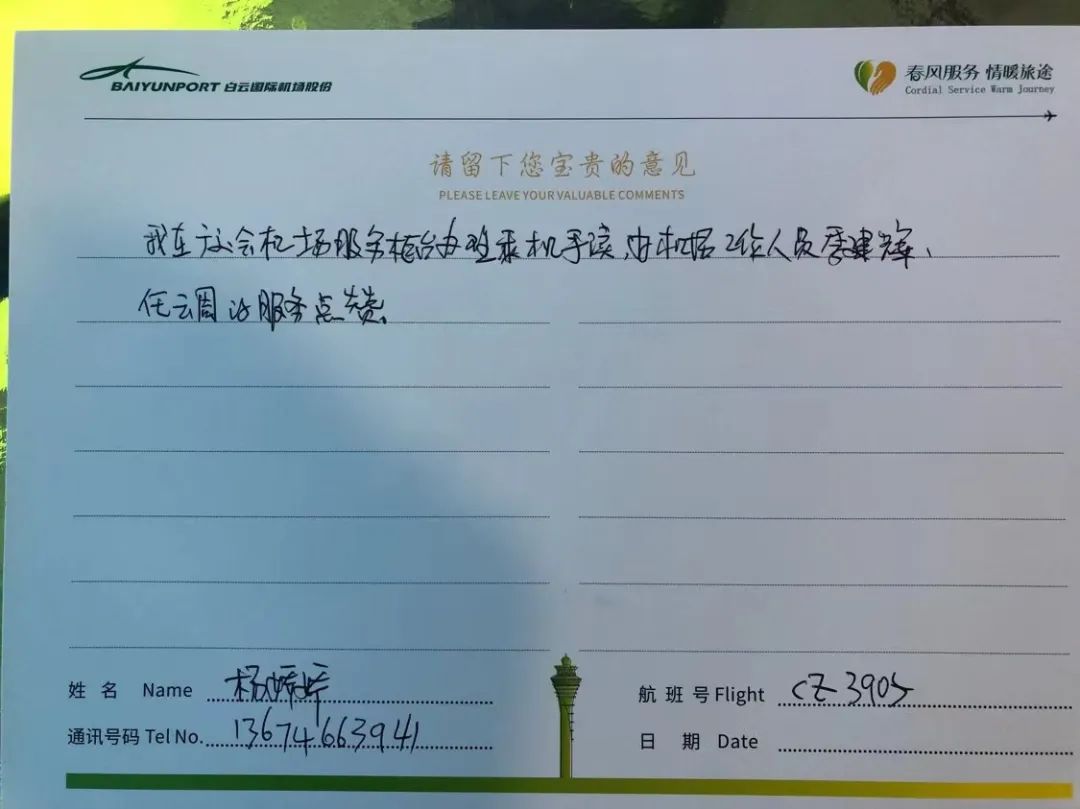 BAIYUNPORT 白云国际机场股份
春风服务 情暖旅途
Cordial Service Warm Journey
请留下您宝贵的意见
PLEASE LEAVE YOUR VALUABLE COMMENTS
我在 机场服务柜台办 乘机手续, 工作人员 建辉、
任云周 服务点赞
姓 名 Name 杨
航 班 号 Flight CZ3905
通讯号码 Tel No. 13674663941
日 期 Date